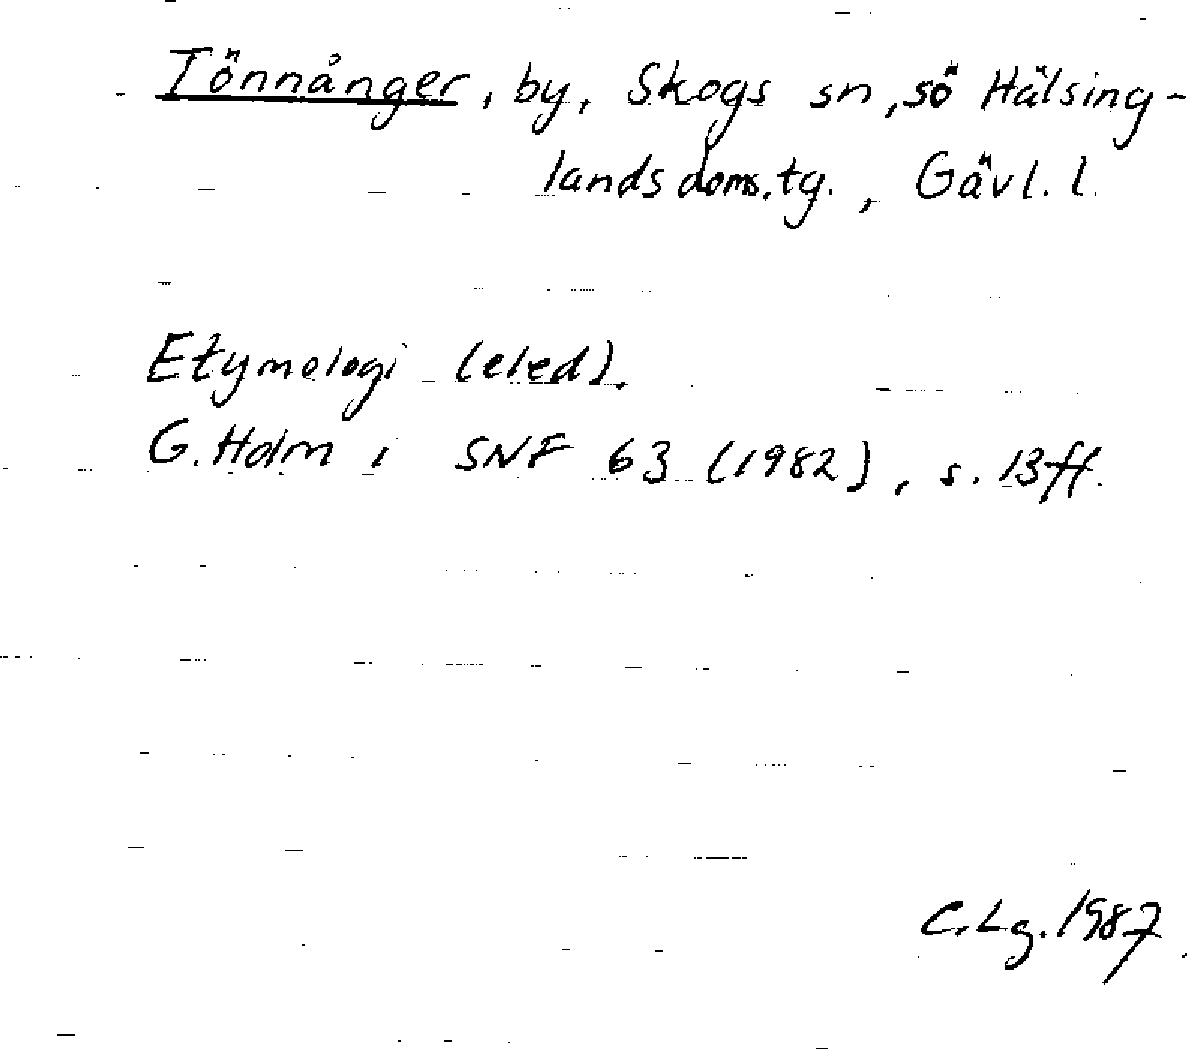 Tönnånger, by, Skogs sn, sö Hälsing-
lands doms.tg., Gävl. l.
Etymologi (eled).
G. Holm i SNF 63 (1982), s. 13ff.
C.Lg. 1987